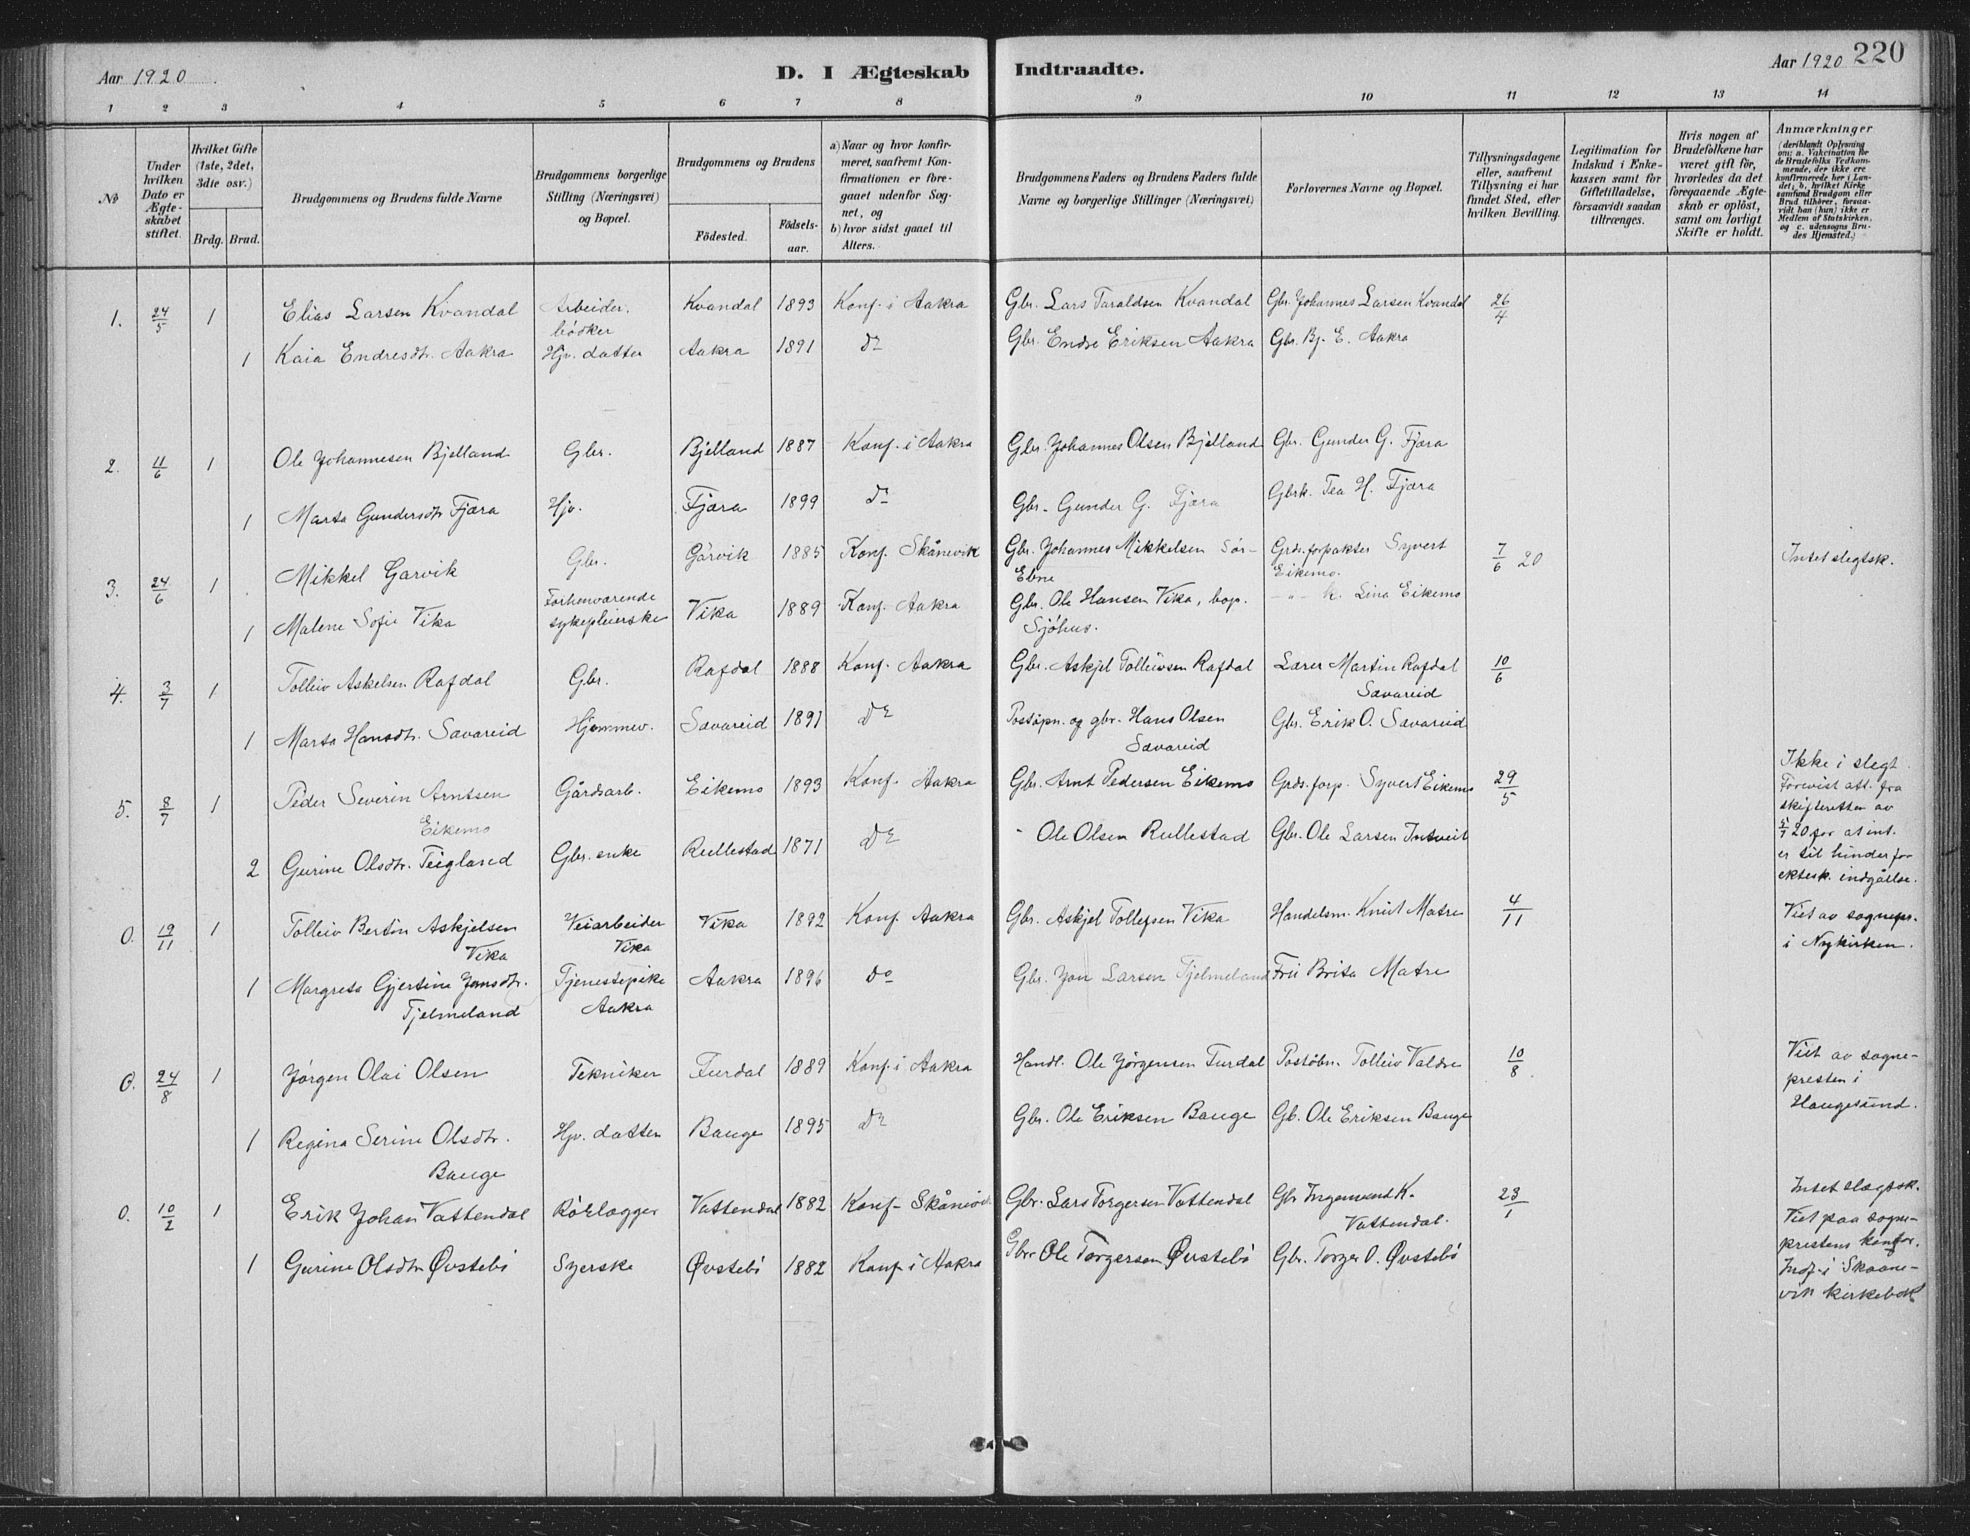 Aar 1920. D. I Ægteskab Indtraadte. Aar 1920 220
1 2 3 4 5 6 7 8 9 10 11 12 13 14
№
Under hvilken Dato er Ægteskabet stiftet.
Hvilket Gifte (1ste, 2det, 3die osv.)
Brdg. Brud.
Brudgommens og Brudens fulde Navne
Brudgommens borgerlige Stilling (Næringsvei) og Bopæl.
Brudgommens og Brudens
Födested. Födsels-aar.
a) Naar og hvor konfirmeret, saafremt Konfirmationen er foregaaet udenfor Sognet, og
b) hvor sidst gaaet til Alters.
Brudgommens Faders og Brudens Faders fulde Navne og borgerlige Stillinger (Næringsvei)
Forlovernes Navne og Bopæl.
Tillysningsdagene eller, saafremt Tillysning ei har fundet Sted, efter hvilken Bevilling.
Legitimation for Indskud i Enkekassen samt for Giftetilladelse, forsaavidt saadan tiltrænges.
Hvis nogen af Brudefolkene har været gift för, hvorledes da det foregaaende Ægteskab er oplöst, samt om lovligt Skifte er holdt.
Anmærkninger (deriblandt Oplysning om: a. Vakcination for de Brudefolks Vedkommende, der ikke ere konfirmerede her i Landet; b. hvilket Kirkesamfund Brudgom eller Brud tilhörer, forsaavidt han (hun) ikke er Medlem af Statskirken, og c. udensogns Brudes Hjemsted.)
1. 24/5 1 Elias Larsen Kvandal Arbeider. bödker Kvandal 1893 Konf. i Aakra Gbr. Lars Taraldsen Kvandal Gbr. Johannes Larsen Kvandal 26/4
1 Kaia Endresdtr. Aakra Hjv. datter Aakra 1891 Do Gbr. Endre Eriksen Aakra Gbr. Bj. E. Aakra
2. 11/6 1 Ole Johannesen Bjelland Gbr. Bjelland 1887 Konf. i Aakra Gbr. Johannes Olsen Bjelland Gbr. Gunder G. Fjæra
1 Marta Gundersdtr Fjæra Hjv. Fjæra 1899 Do Gbr. Gunder G. Fjæra Gbrk. Tea H. Fjæra
3. 24/6 1 Mikkel Garvik Gbr. Garvik 1885 Konf. Skånevik Gbr. Johannes Mikkelsen Sör-Ebne Grds.forpakter Syvert Eikemo. 7/6 20 Intet slegtsk.
1 Malene Sofie Vika Forhenværende sykepleierske Vika 1889 Konf. Aakra Gbr. Ole Hansen Vika, bop. Sjöhus. — " — k. Lina Eikemo
4. 3/7 1 Tolleiv Askelsen Rafdal Gbr. Rafdal 1888 Konf. Aakra Gbr. Askjel Tolleivsen Rafdal Lærer Martin Rafdal Savareid 10/6
1 Marta Hansdtr. Savareid Hjemmev. Savareid 1891 Do Postöpn. og gbr. Hans Olsen Savareid Gbr. Erik O. Savareid
5. 8/7 1 Peder Severin Arntsen Eikemo Gårdsarb. Eikemo 1893 Konf. i Aakra Gbr. Arnt Pedersen Eikemo Grds.forp. Syvert Eikemo 29/5 Ikke i slegt. Forevist att. fra skifteretten av 5/7 20 for at int. er til hinder for ektesk. indgåelse.
2 Gurine Olsdtr. Teigland Gbr. enke Rullestad 1871 Do " Ole Olsen Rullestad Gbr. Ole Larsen Intveit
0. 19/11 1 Tolleiv Bertin Askjelsen Vika Veiarbeider Vika Vika 1892 Konf. Aakra Gbr. Askjel Tollefsen Vika Handelsm. Knut Matre 4/11 Viet av sognepr. i Nykirken.
1 Margreta Gjertine Jonsdtr. Tjelmeland Tjenestepike Aakra Aakra 1896 Do Gbr. Jon Larsen Tjelmeland Fru Brita Matre
0. 24/8 1 Jörgen Olai Olsen Tekniker Furdal 1889 Konf. i Aakra Handl. Ole Jörgensen Furdal Postöbn. Tolleiv Valdre 10/8 Viet av sognepresten i Haugesund.
1 Regina Serine Olsdtr. Bauge Hjv. datter Bauge 1895 Do Gbr. Ole Eriksen Bauge Gb. Ole Eriksen Bauge
0. 10/2 1 Erik Johan Vattendal Rörlægger Vattendal 1882 Konf. Skånevik Gbr. Lars Torgersen Vattendal Gbr Ingemund K. Vattendal. 23/1 Intet slægtsk. Viet paa sogneprestens kontor. Indf. i Skaanevik kirkebok
1 Gurine Olsdtr Øvstebö Syerske Øvstebö 1882 Konf. i Aakra Gbr. Ole Torgersen Øvstebö Gbr. Torger O. Øvstebö